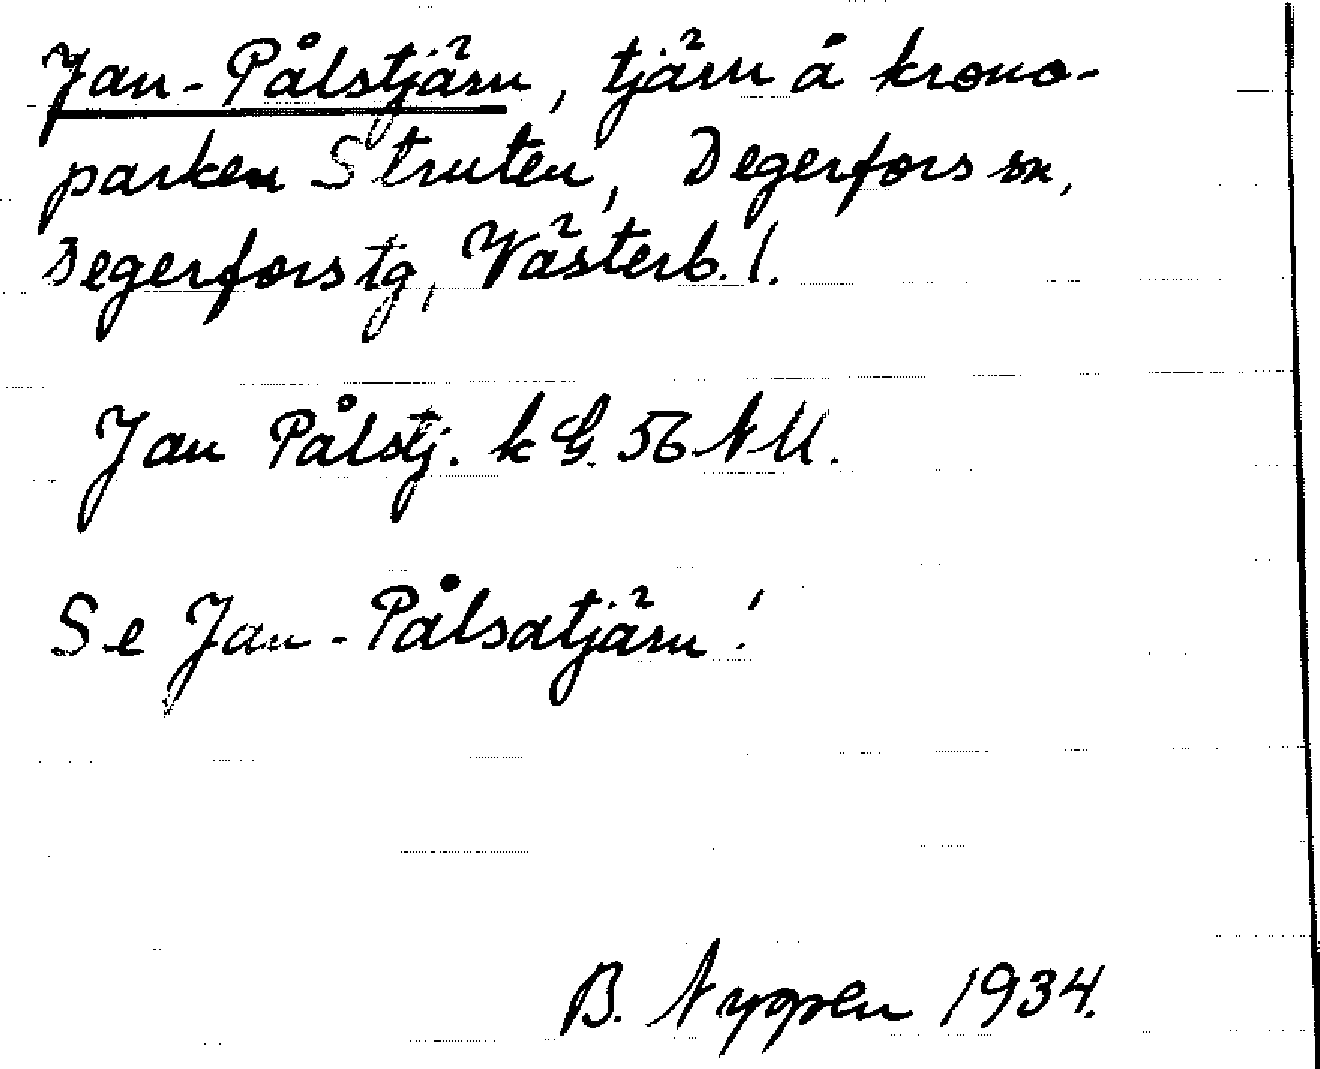 Jan-Pålstjärn, tjärn å krono-
parken Struten, Degerfors sn,
Degerfors tg, Västerb. l.
Jan Pålstj. k G. 56 NU.
Se Jan-Pålsatjärn!
B. Nyppen 1934.